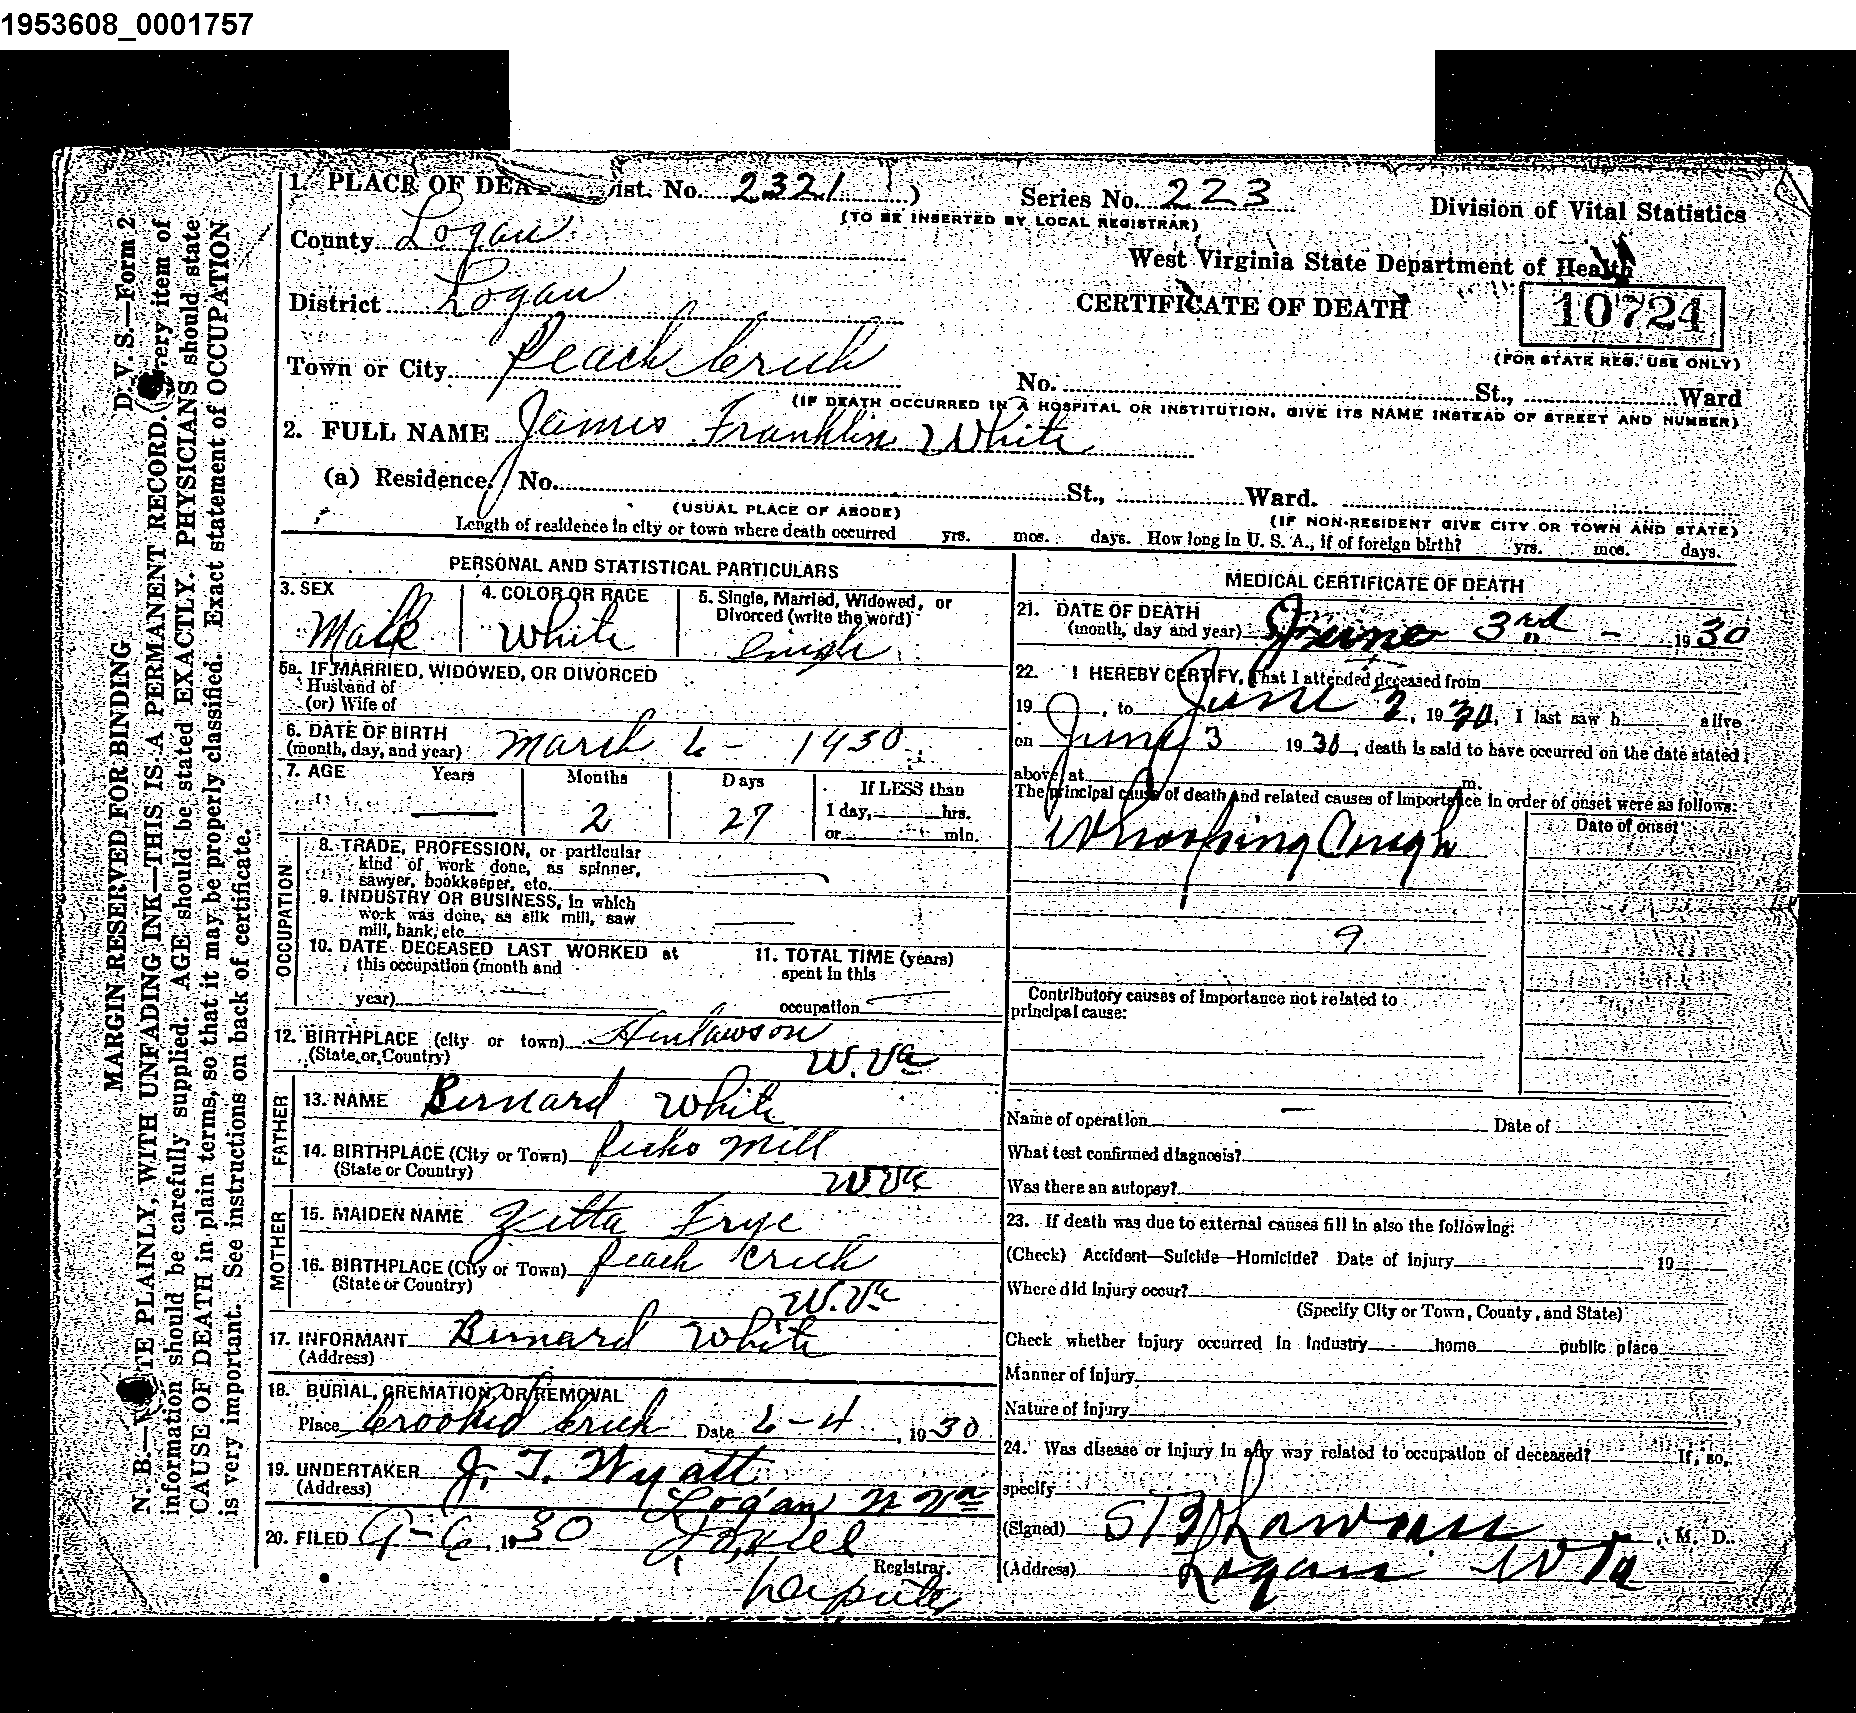 1953608_0001757
1. PLACE OF DEA ist. No. 2321 ) Series No. 223 Division of Vital Statistics
(TO BE INSERTED BY LOCAL REGISTRAR)
County Logan
West Virginia State Department of Health
District Logan
CERTIFICATE OF DEATH
10724
(FOR STATE REG. USE ONLY)
Town or City Peach Creek
No. St., Ward
(IF DEATH OCCURRED IN A HOSPITAL OR INSTITUTION, GIVE ITS NAME INSTEAD OF STREET AND NUMBER)
2. FULL NAME James Franklin White
(a) Residence. No. St., Ward.
(USUAL PLACE OF ABODE) (IF NON-RESIDENT GIVE CITY OR TOWN AND STATE)
Length of residence in city or town where death occurred yrs. mos. days. How long in U. S. A., if of foreign birth? yrs. mos. days.
PERSONAL AND STATISTICAL PARTICULARS
3. SEX 4. COLOR OR RACE 5. Single, Married, Widowed, or
Divorced (write the word)
Male White Single
5a. IF MARRIED, WIDOWED, OR DIVORCED
Husband of
(or) Wife of
6. DATE OF BIRTH
(month, day, and year) March 6 - 1930
7. AGE Years Months Days If LESS than
1 day, hrs.
2 27
or min.
OCCUPATION
8. TRADE, PROFESSION, or particular
kind of work done, as spinner,
sawyer, bookkeeper, etc.
9. INDUSTRY OR BUSINESS, in which
work was done, as silk mill, saw
mill, bank, etc
10. DATE DECEASED LAST WORKED at
this occupation (month and
year)
11. TOTAL TIME (years)
spent in this
occupation
12. BIRTHPLACE (city or town) Henlawson
(State or Country) W. Va
FATHER
13. NAME Bernard White
14. BIRTHPLACE (City or Town) Mill
(State or Country) W Va
MOTHER
15. MAIDEN NAME Zetta Frye
16. BIRTHPLACE (City or Town) Peach Creek
(State or Country) W. Va
17. INFORMANT Bernard White
(Address)
18. BURIAL, CREMATION, OR REMOVAL
Place Crooked Creek Date 6-4, 1930
19. UNDERTAKER J. T. Wyatt
(Address) Logan W Va
20. FILED 1930
Registrar.
Deputy
MEDICAL CERTIFICATE OF DEATH
21. DATE OF DEATH
(month, day and year) June 3rd - 1930
22. I HEREBY CERTIFY, That I attended deceased from
19 , to June 2, 1930, I last saw h alive
on June 3 1930, death is said to have occurred on the date stated
above, at m.
The principal cause of death and related causes of importance in order of onset were as follows:
Date of onset
Whooping Cough
9
Contributory causes of importance not related to
principal cause:
Name of operation Date of
What test confirmed diagnosis?
Was there an autopsy?
23. If death was due to external causes fill in also the following:
(Check) Accident—Suicide—Homicide? Date of injury 19
Where did injury occur?
(Specify City or Town, County, and State)
Check whether injury occurred in industry home public place
Manner of injury
Nature of injury
24. Was disease or injury in any way related to occupation of deceased? If, so,
specify
(Signed) , M. D.
(Address) Logan W Va
D. V. S.—Form 2
MARGIN RESERVED FOR BINDING
N. B.—WRITE PLAINLY, WITH UNFADING INK—THIS IS A PERMANENT RECORD. Every item of
information should be carefully supplied. AGE should be stated EXACTLY. PHYSICIANS should state
CAUSE OF DEATH in plain terms, so that it may be properly classified. Exact statement of OCCUPATION
is very important. See instructions on back of certificate.